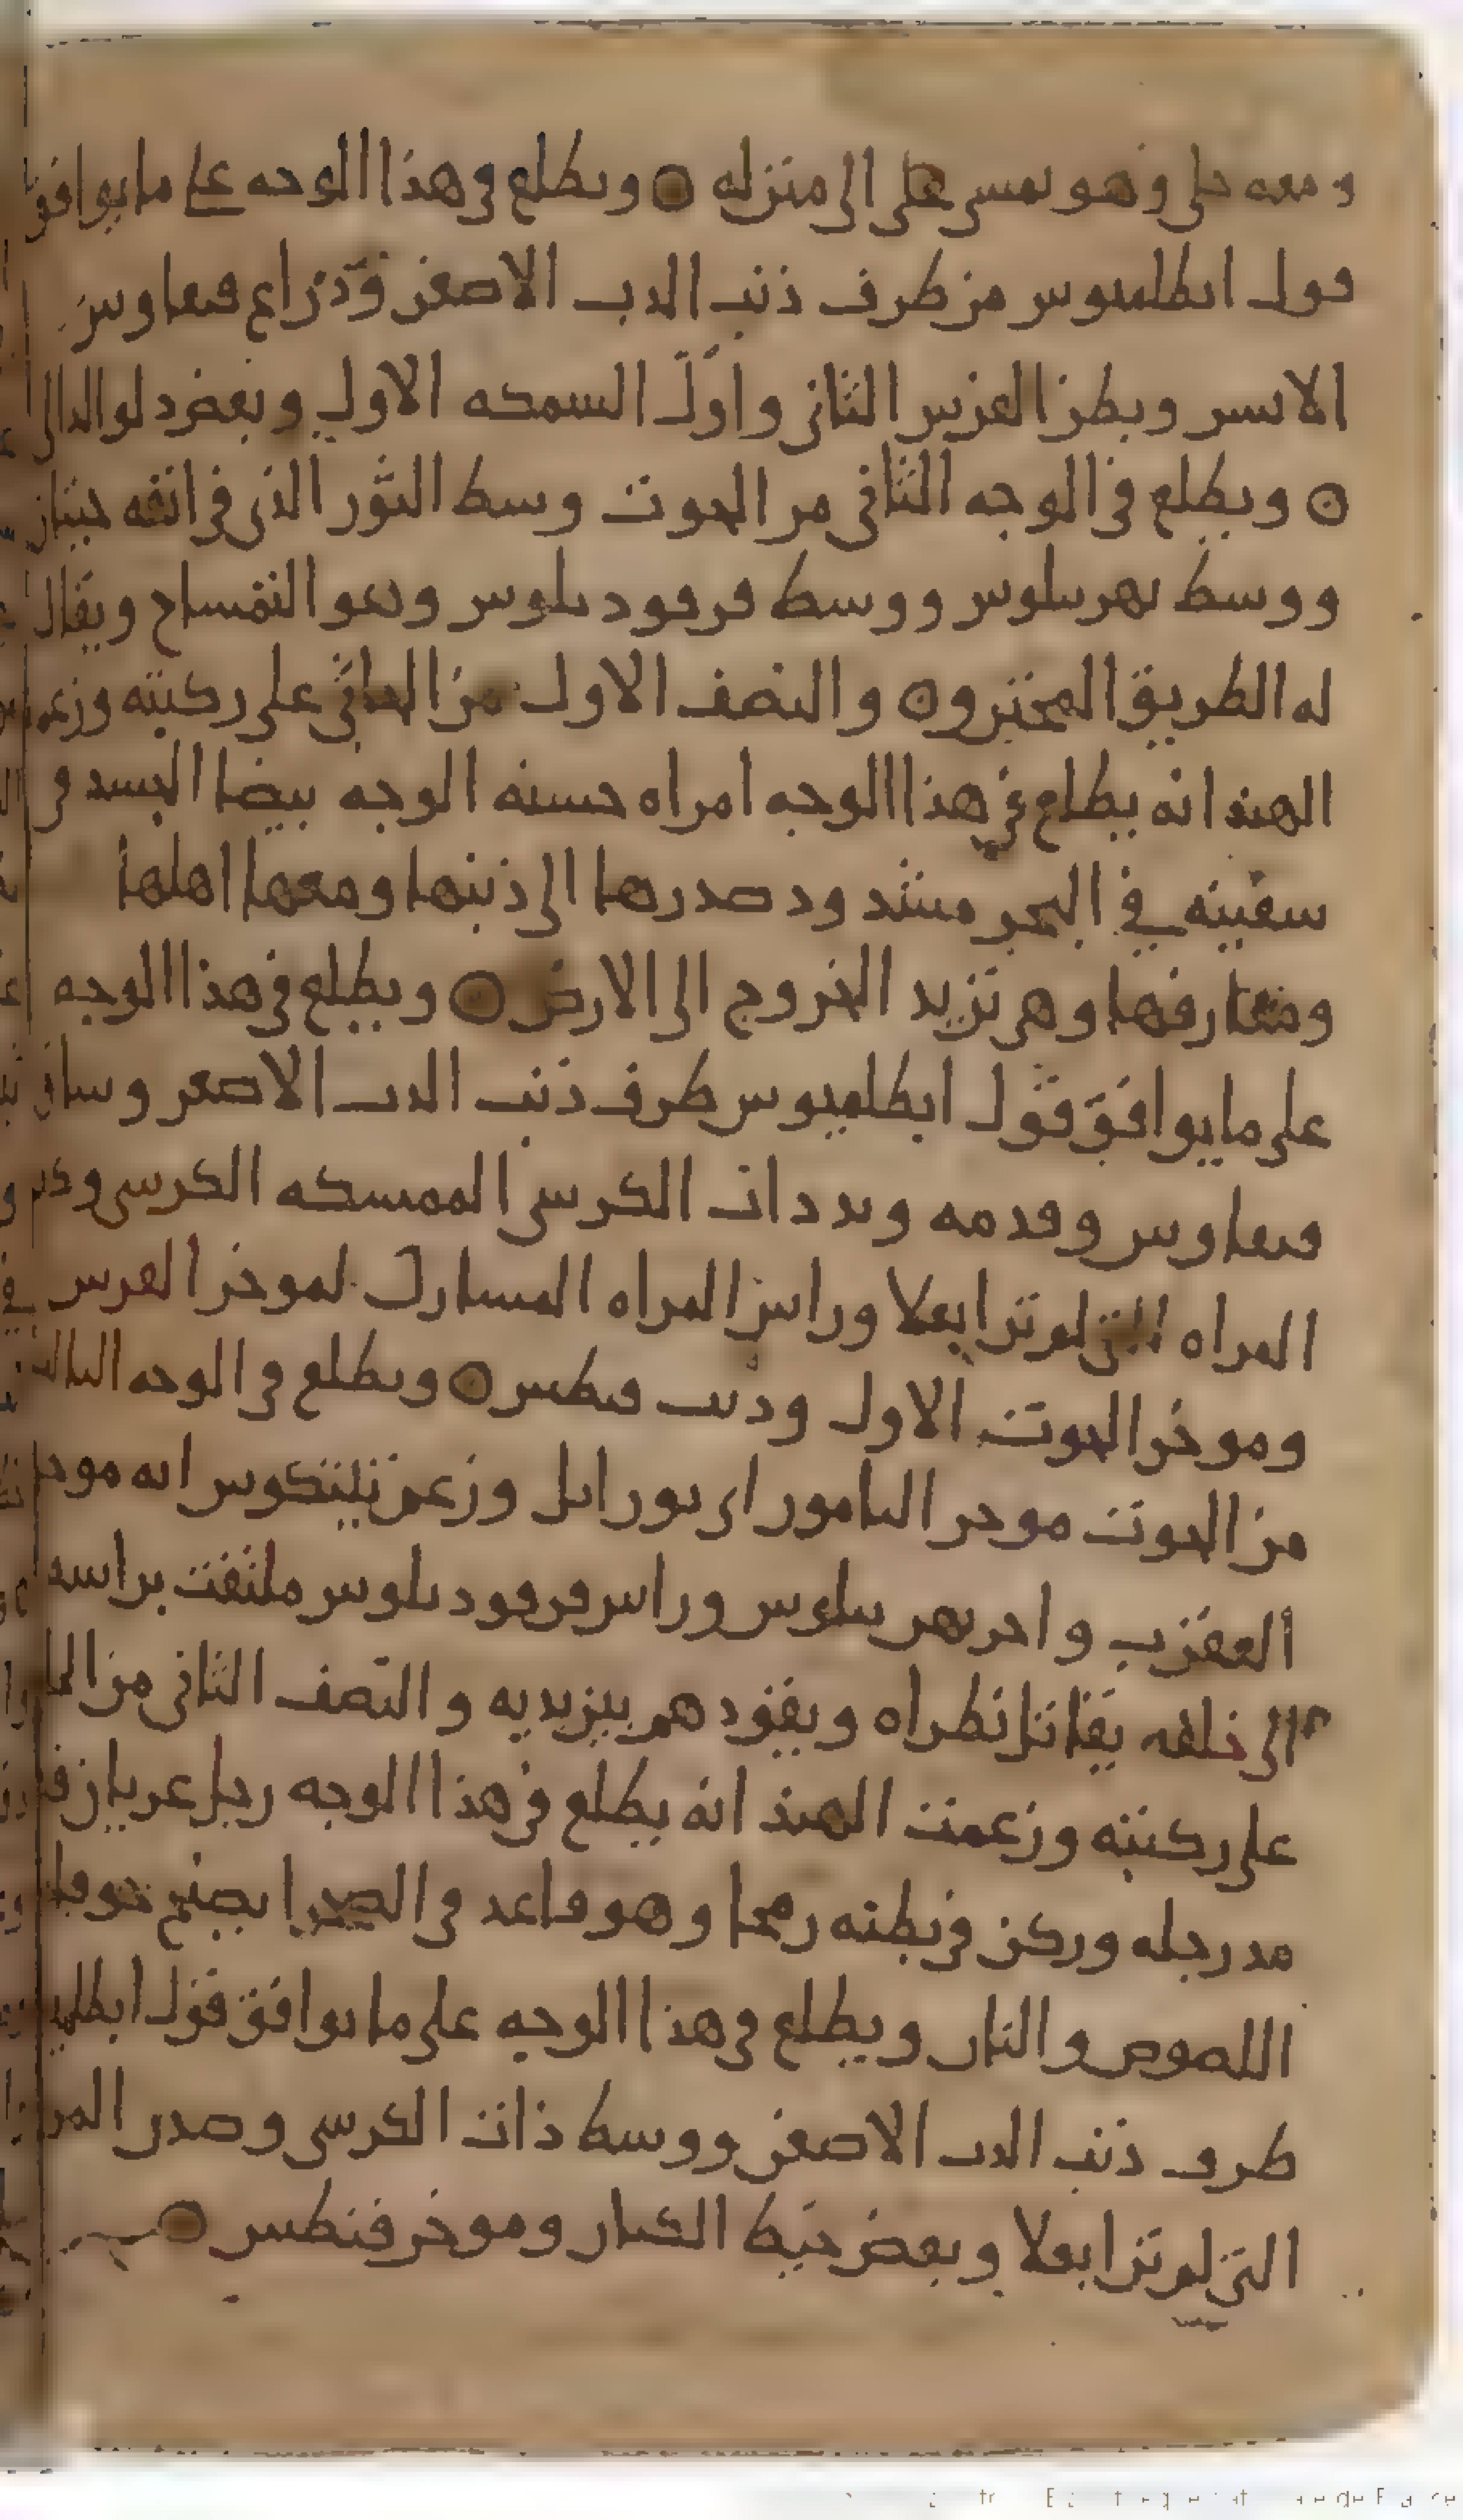 ومعه حلي وهو يمسي على الى منزله ۝ ويطلع في هذا الوجه على ما يوافق
قول ابطلميوس من طرف ذنب الدب الاصغر وذراع قيقاوس
الايسر وبطن الفرس الثاني واول السمكه الاولى وبعض دلو الدالي
۝ ويطلع في الوجه الثاني من الحوت وسط الثور الذي في انفه حيتان
ووسط نهر نيلوس ووسط قرقوديلوس وهو التمساح ويقال
له الطريق المحترق ۝ والنصف الاول من الجاثي على ركبته وزعم
الهند انه يطلع في هذا الوجه امراه حسنه الوجه بيضا الجسد في
سفينه في البحر مشدود صدرها الى ذنبها ومعها اهلها
ومعارفها وهي تريد الخروج الى الارض ۝ ويطلع في هذا الوجه
على ما يوافق قول ابطلميوس طرف ذنب الدب الاصغر وساق
قيقاوس وقدمه ويد ذات الكرسي الممسكه الكرسي
المراه التي لم تر ابعلا وراس المراه المشارك لموخر الفرس
وموخر الحوت الاول وذنب قيطس ۝ ويطلع في الوجه الثالث
من الحوت موخر اليامور اي ثور ايل وزعم تينكلوس انه موخر
العقرب واخر نهر نيلوس وراس قرقوديلوس ملتفت براسه
الى خلفه ويقودهم بين يديه والنصف الثاني من الجا
على ركبته وزعمت الهند انه يطلع في هذا الوجه رجل عريان قد
مد رجله وركز في بطنه رمحا وهو قاعد في الصحرا يصيح خوفا
اللصوص والنار ويطلع في هذا الوجه على ما يوافق قول ابطلميو
طرف ذنب الدب الاصغر ووسط ذات الكرسي وصدر المر
التي لم تر ابعلا وبعض خيط الكتان وموخر قيطس ۝